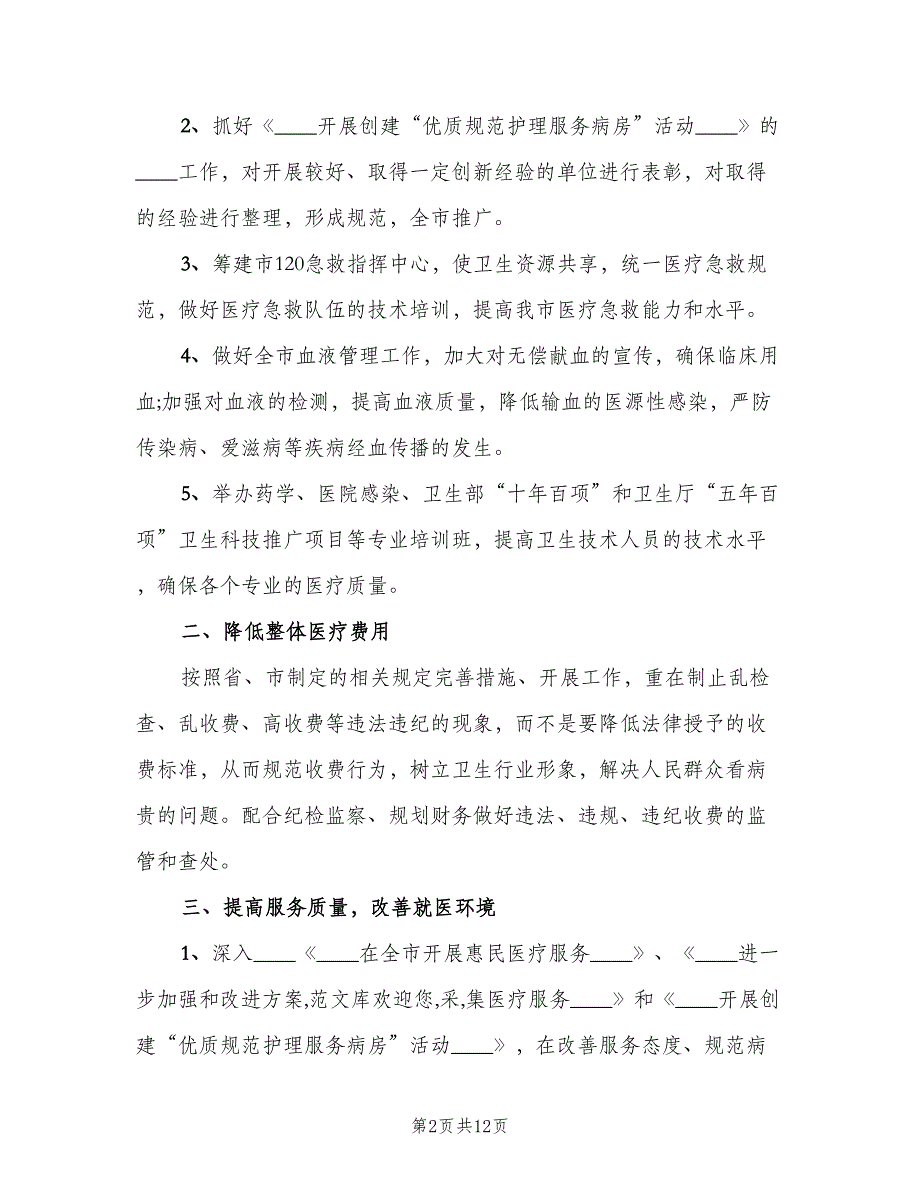 2、抓好《____开展创建“优质规范护理服务病房”活动____》的
____工作，对开展较好、取得一定创新经验的单位进行表彰，对取得
的经验进行整理，形成规范，全市推广。
3、筹建市120急救指挥中心，使卫生资源共享，统一医疗急救规
范，做好医疗急救队伍的技术培训，提高我市医疗急救能力和水平。
4、做好全市血液管理工作，加大对无偿献血的宣传，确保临床用
血;加强对血液的检测，提高血液质量，降低输血的医源性感染，严防
传染病、爱滋病等疾病经血传播的发生。
5、举办药学、医院感染、卫生部“十年百项”和卫生厅“五年百
项”卫生科技推广项目等专业培训班，提高卫生技术人员的技术水平
，确保各个专业的医疗质量。
二、降低整体医疗费用
按照省、市制定的相关规定完善措施、开展工作，重在制止乱检
查、乱收费、高收费等违法违纪的现象，而不是要降低法律授予的收
费标准，从而规范收费行为，树立卫生行业形象，解决人民群众看病
贵的问题。配合纪检监察、规划财务做好违法、违规、违纪收费的监
管和查处。
三、提高服务质量，改善就医环境
1、深入____《____在全市开展惠民医疗服务____》、《____进一
步加强和改进方案,范文库欢迎您,采,集医疗服务____》和《____开展创
建“优质规范护理服务病房”活动____》，在改善服务态度、规范病
第2页共12页